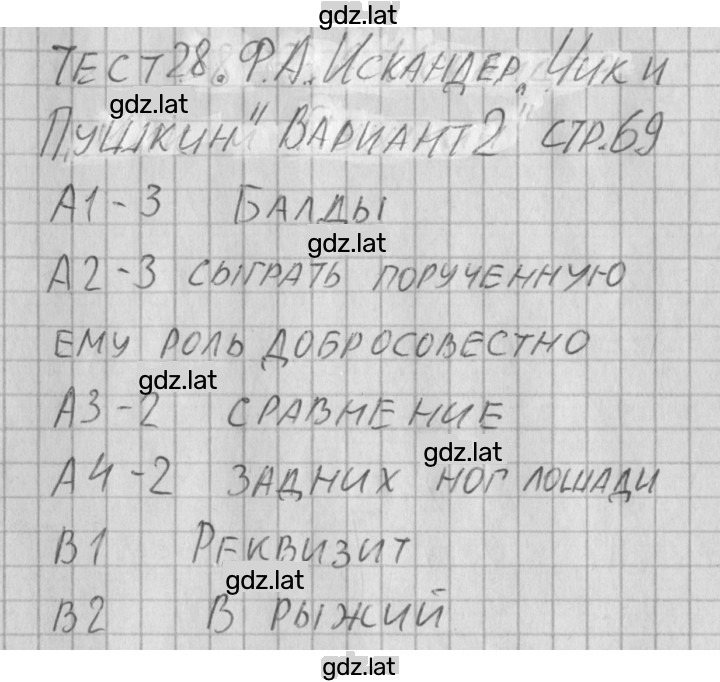 gdz.lat
ТЕСТ 28. Ф.А. ИСКАНДЕР „ЧИК И
gdz.lat
ПУШКИН" ВАРИАНТ 2 СТР.69
А1-3 БАЛДЫ
gdz.lat
А2-3 СЫГРАТЬ ПОРУЧЕННУЮ
ЕМУ РОЛЬ ДОБРОСОВЕСТНО
gdz.lat
А3-2 СРАВНЕНИЕ
gdz.lat
А4-2 ЗАДНИХ НОГ ЛОШАДИ
В1 РЕКВИЗИТ
gdz.lat
В2 В РЫЖИЙ
gdz.lat